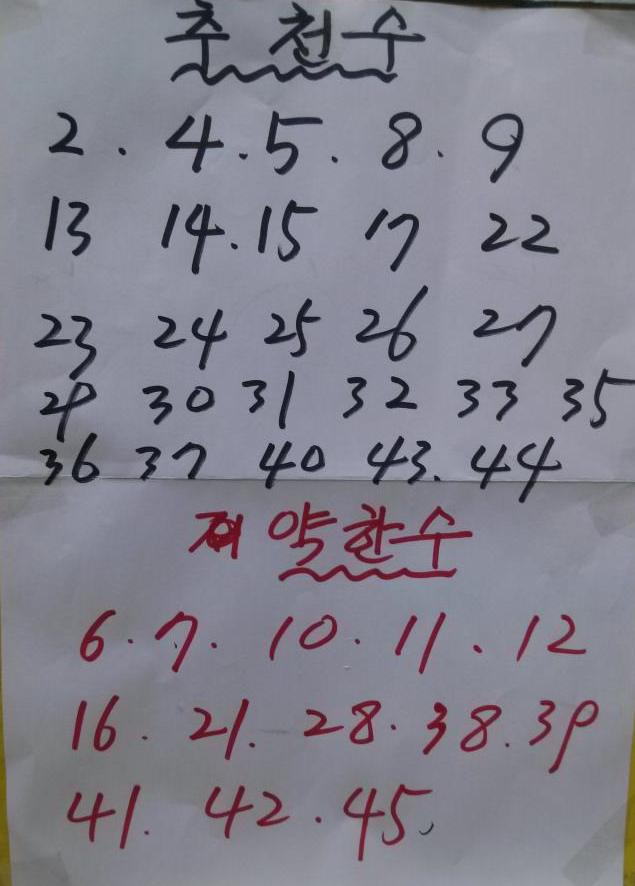 추천수
2. 4. 5. 8. 9
13 14. 15 17 22
23 24 25 26 27
29 30 31 32 33 35
36 37 40 43. 44
약한수
6. 7. 10. 11. 12
16. 21. 28. 38. 39
41. 42. 45.